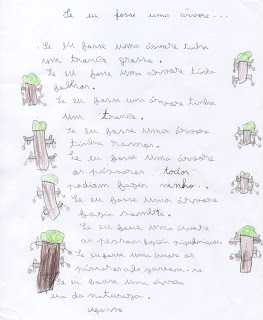 Se eu fosse uma árvore...
Se eu fosse uma árvore tinha
um tronco grosso.
Se eu fosse uma árvore tinha
folhas.
Se eu fosse uma árvore tinha
um tronco.
Se eu fosse uma árvore
tinha ramos.
Se eu fosse uma árvore
os pássaros todos
podiam fazer ninho..
Se eu fosse uma árvore
fazia sombra.
Se eu fosse uma árvore
as pessoas faziam piqueniques.
Se eu fosse uma árvore os
pássaros
Se eu fosse uma árvore
era da natureza.